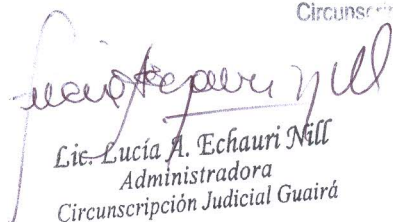 Circunscri
Lic. Lucía A. Echauri Nill
Administradora
Circunscripción Judicial Guairá